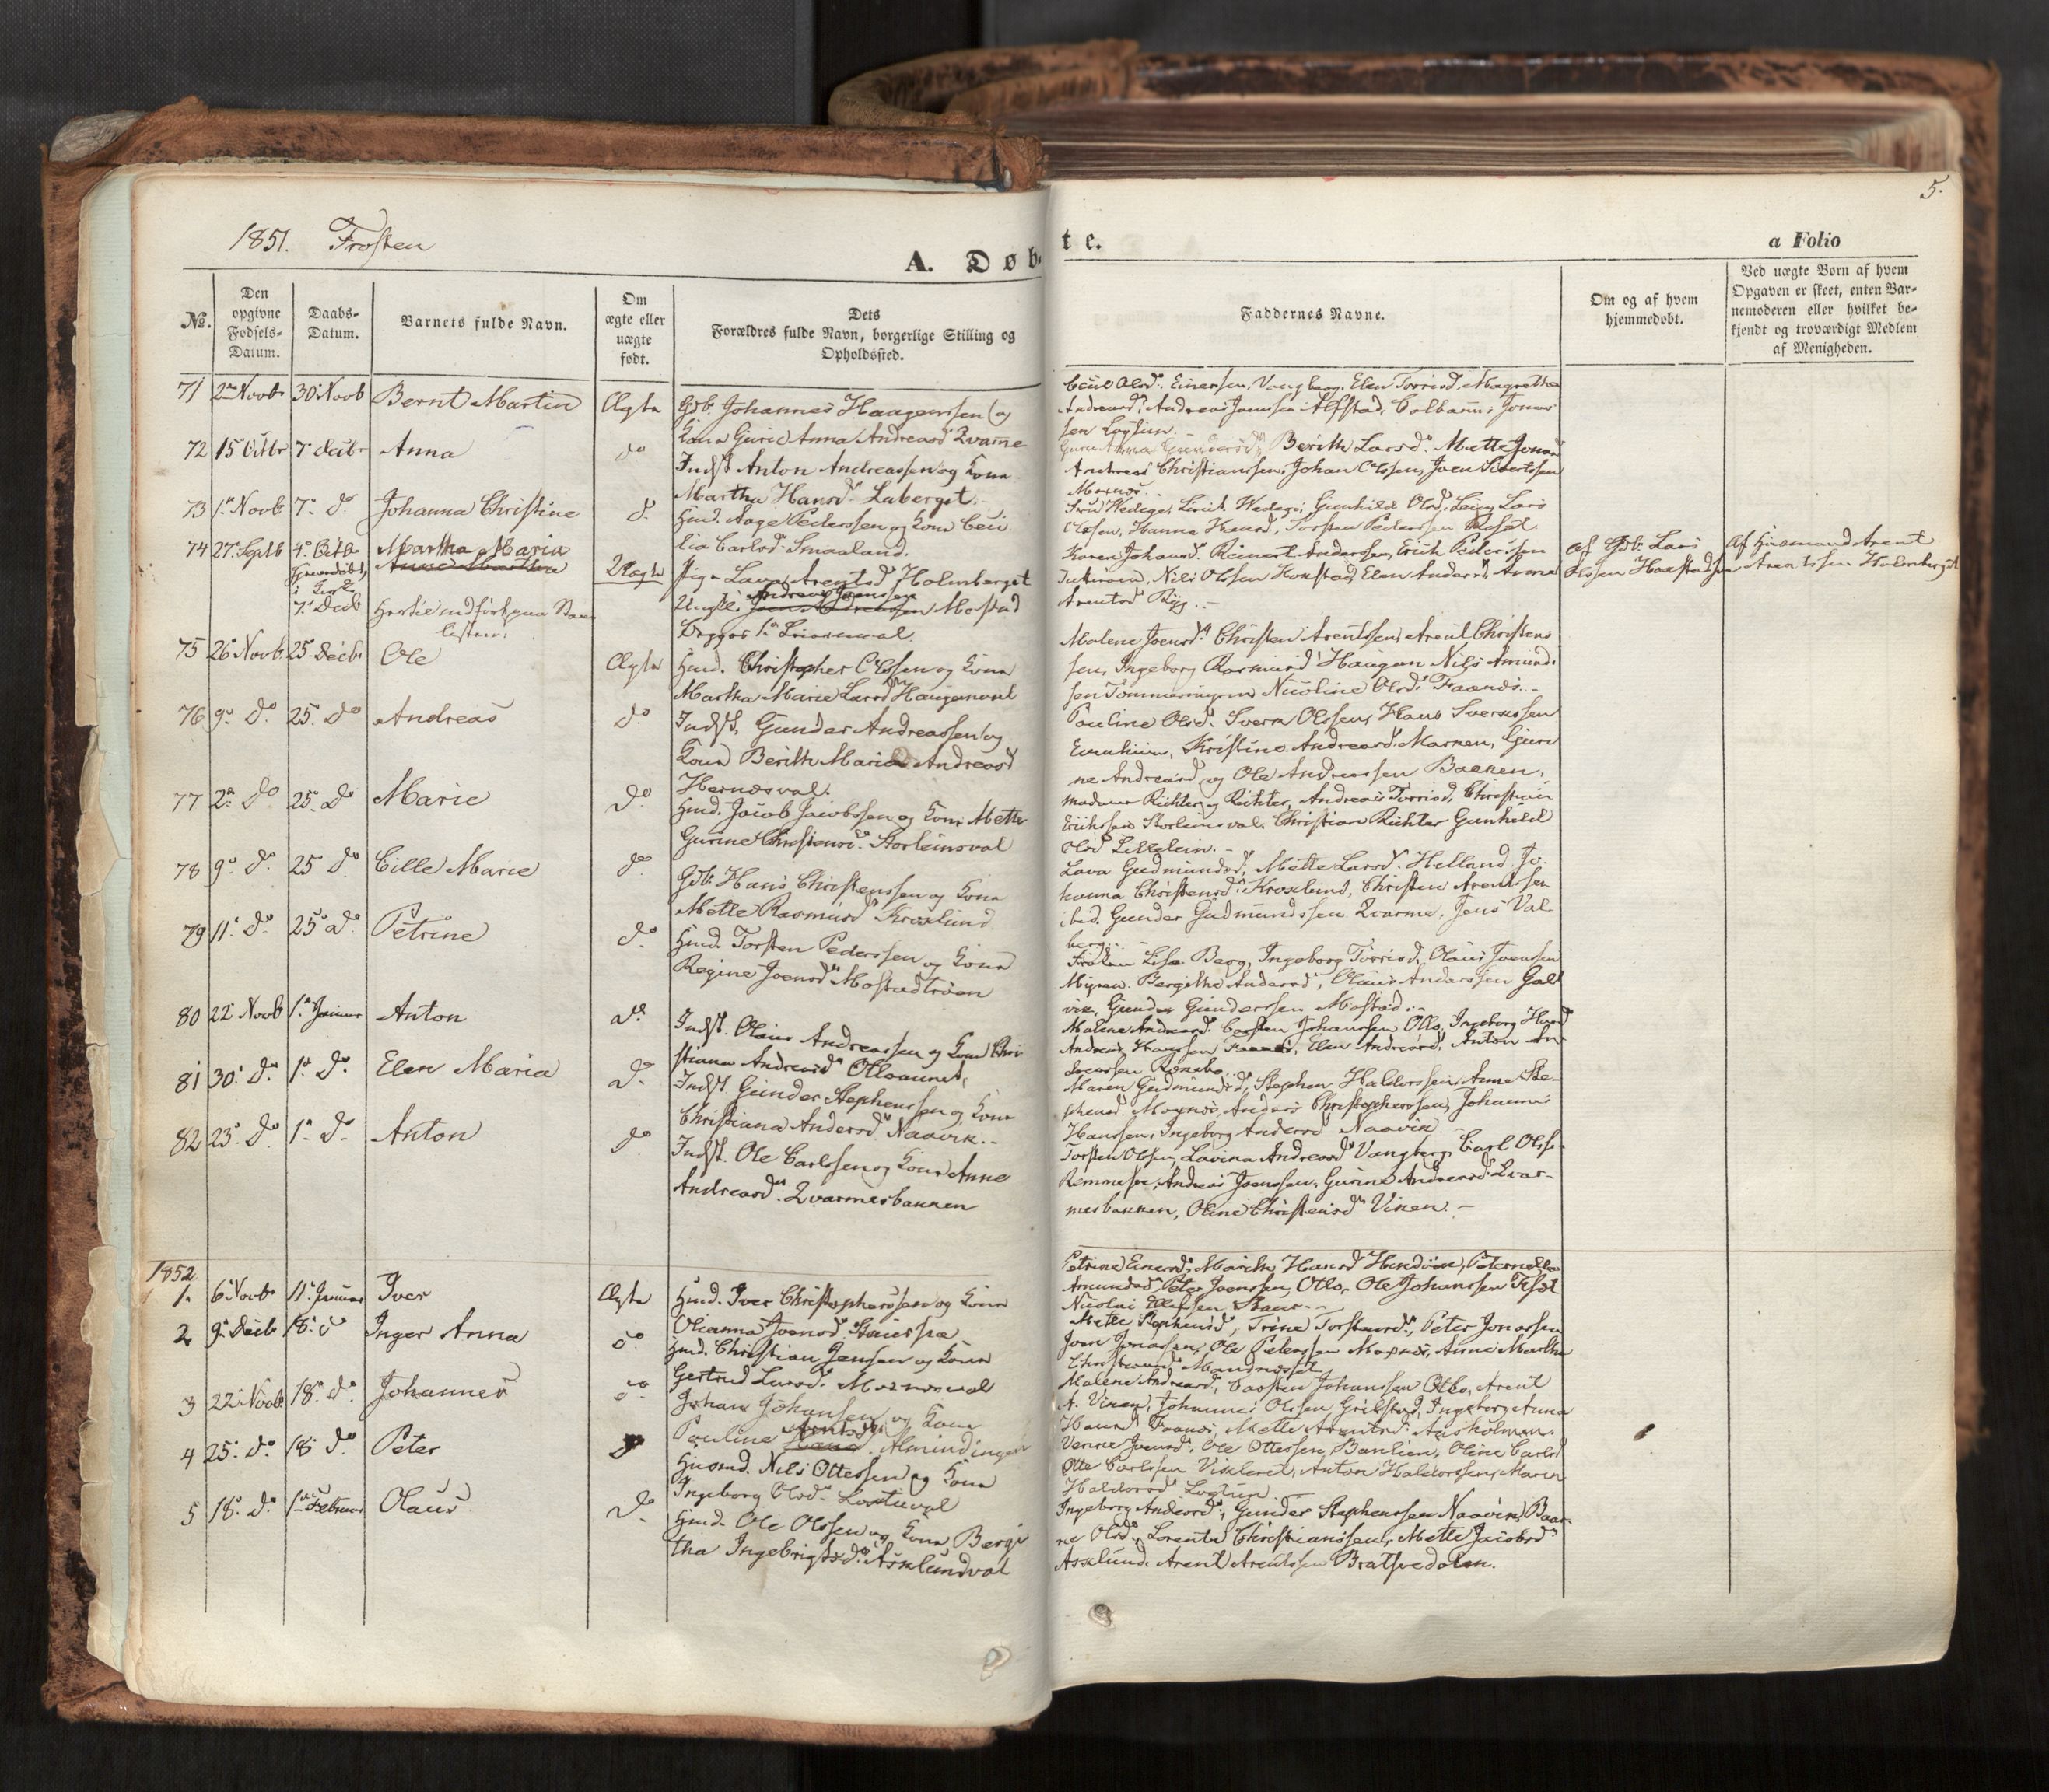 1851. Frosten
A. Døb-
te.
5.
a Folio
No.
Den opgivne Fødsels-Datum.
Daabs-Datum.
Barnets fulde Navn.
Om ægte eller uægte født.
Dets Forældres fulde Navn, borgerlige Stilling og Opholdssted.
Faddernes Navne.
Om og af hvem hjemmedøbt.
Ved uægte Børn af hvem Opgaven er skeet, enten Barnemoderen eller hvilket bekjendt og troværdigt Medlem af Menigheden.
71 2den Novb 30 Novb Bernt Martin Ægte
Gdb. Johannes Haagenssen og
Kona Guric Anna Andreasd Qvarme
Einersen, Vangberg, Elen Torrisd, Magrethe
Andreasd, Andreas Joenssen Alfstad,
72 15 Octbr 7 Decbr Anna do
Indst Anton Andreassen og Kona
Martha Hansd. Laberget.
Berith Larsd. Mette Jonasd
Andreas Christianssen, Johan Olssen, Joen Sivertssen
Moxnes.
73 1ste Novb 7de do Johanna Christine do
Hmd. Aage Pederssen og Kona Ceci
lia Carlsd. Smaaland.
Gunhild Olsd, Lars
Olssen, Hanna Hansd, Torsten Pederssen Rosæt
74 27 Septb 4de Octb Martha Maria
Anne Martha
Hjemmedøbt,
i Kirke
7de Decb
Uægte
Pige Lava Arentsd Holmberget
Ungk. Andreas Joenssen
Joen Andreassen Mostad
Begges 1ste Leiermaal.
Karen Johansd, Reinert Anderssen, Erich Pederssen
Nils Olssen Hoxstad, Elen Andersd, Anne
Arentsd Ryg.
Af Gdb. Lars
Olssen Hoxstad
Af Huusmand Arent
Arentssen Holmberget
75 26 Novb 25 Decb Ole Ægte
Hmd. Christopher Olssen og Kona
Martha Marie Larsd Haugansval
Malene Joensd, Christen Arentssen, Arent Christens
sen, Ingeborg Rasmusd Haugan, Nils Amund-
sen Tømmeraasen, Nicoline Olsd Faanæs.
76 9de do 25 do Andreas do
Indst. Gunder Andreassen og
Kona Berith Maria Andreasd
Hernæsval.
Pauline Olsd. Svern Olssen, Hans Sverressen
Kristine Andreasd Marken, Guri
ne Andreasd og Ole Andreassen Bakken.
77 2den do 25 do Marie do
Hmd. Jacob Jacobssen og Kona Mette
Gurine Christensd. Storleinsval
Madame Richter og Richter, Andreas Torrisd, Christian
Erichssen Storleinsval. Christian Richter Gunhild
Olsd Lillelein.
78 9de do 25 do Cille Marie do
Gdb. Hans Christenssen og Kona
Mette Rasmusd Kroglund
Lava Gudmundsd, Mette Larsd. Helland, Jo-
hanna Christensd Kroglund, Christen Arentssen
ibid. Gunder Gudmundssen Qvarme, Jens Val
berg.
79 11 do 25 do Petrine do
Hmd. Torsten Pederssen og Kona
Regine Joensd Mostadtrøen
Frøken Lise Berg, Ingeborg Torrisd, Olaus Joenssen
Myran. Bergithe Andersd, Olaus Anderssen Galt
vik, Gunder Gunderssen Mostad.
80 22 Novb 1ste Januar Anton do
Indst. Olaus Andreassen og Kona Chri
stiana Andreasd Olloaunet,
Malene Andreasd. Carsten Johanssen Ollo, Ingeborg Hansd
Andreas Haagssen Faanæs, Elen Andreasd, Anton An-
dreassen Rogabo.
81 30 do 1ste do Elen Maria do
Indst. Gunder Stephenssen og Kona
Christiana Andersd Naavik.
Maren Gudmundsd, Stephen Haldorssen, Anne Ste-
phensd. Moxnes, Anders Christopherssen, Johannes
Hanssen, Ingeborg Andersd Naavik
82 23 do 1ste do Anton do
Indst. Ole Carlssen og Kona Anne
Andreasd. Qvarmesbakken
Torsten Olssen, Lavina Andreasd Vangberg, Carl Olss.
Remmesæ, Andreas Joenssen, Gurine Andreasd Qvar-
mesbakken, Oline Christensd Viken.
1852
1. 6 Novb 11 Januar Iver Ægte
Hmd. Iver Christopherssen og Kona
Olianna Joensd
Petrine Einersd, Marith Hansd Petternelle
Amundsd, Peter Joenssen, Ollo, Ole Johanssen
Nicolai Ellefsen
2 9 Decb 18 do Inger Anna do
Hmd. Christian Jenssen og Kona
Gertrud Larsd. Moxnesval
Mette Stephensd, Trine Torstensd, Peter Jonassen
Joen Jonassen, Ole Peterssen Moxnes, Anne Martha
3 22 Novb 18 do Johannes do
Johan Johansen og Kona
Pauline Arntsd. Almindingen
Malene Andreasd, Carsten Johanssen Ollo, Arent
A. Viken, Johannes Olssen Grilstad, Ingeborg Anna
Hansd Faanæs, Mette Arentsd. Aasholmen.
4 25 do 18 do Peter do
Huusmd. Nils Ottessen og Kona
Ingeborg Olsd.
Joensd. Ole Ottessen, Oline Carlsd
Otte Carlssen Viklem, Anton Haldorssen, Maren
Haldorsd Logtun
5 18 do 1ste Februar Olaus do
Hmd. Ole Olssen og Kona Bergi
tha Ingebrigtsd. Asklundval
Ingeborg Andersd, Gunder Stephenssen Naavik,
ne Olsd, Lorents Christianssen, Mette Jacobsd
Asklund. Arent Arentssen Bratsvedalen.